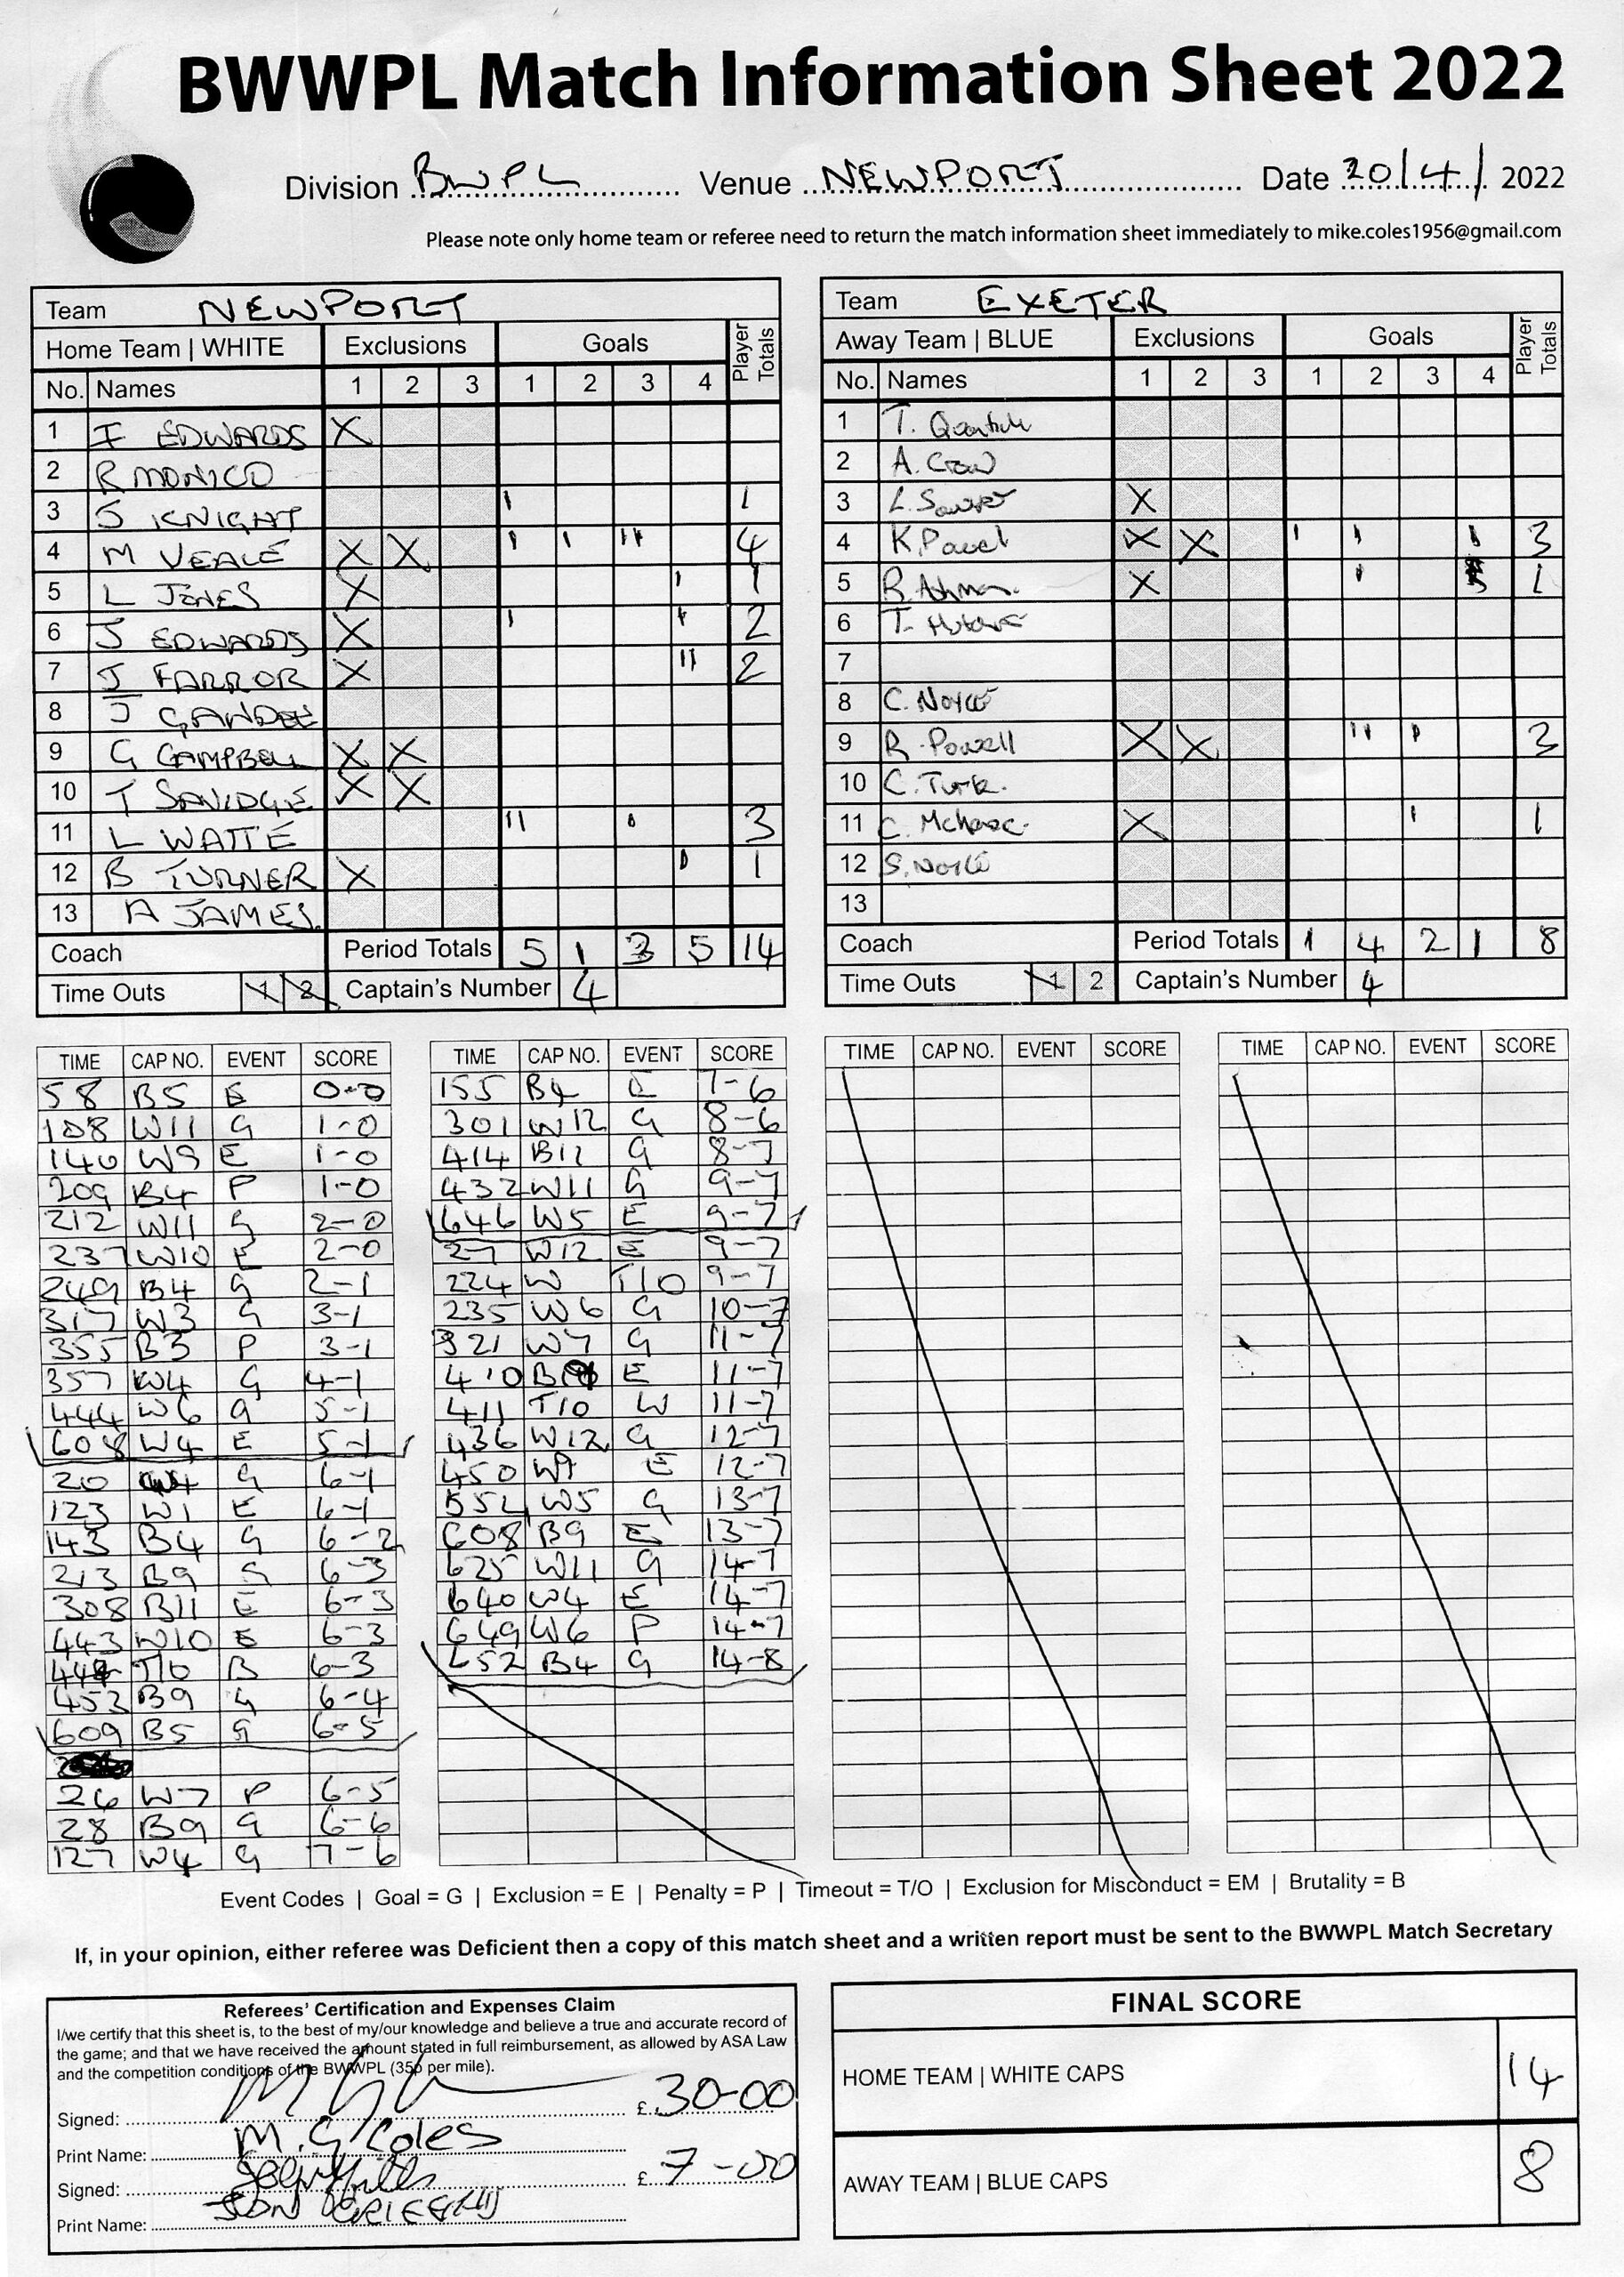 BWWPL Match Information Sheet 2022
Division BWPL Venue NEWPORT Date 20/4/ 2022
Please note only home team or referee need to return the match information sheet immediately to mike.coles1956@gmail.com
Team NEWPORT
Home Team | WHITE Exclusions Goals Player Totals
No. Names 1 2 3 1 2 3 4
1 I EDWARDS X
2 R MONICO
3 S KNIGHT I 1
4 M VEALE X X I I II 4
5 L JONES X I 1
6 J EDWARDS X I I 2
7 J FARROR X II 2
8 J GANDEE
9 G CAMPBELL X X
10 T SAVIDGE X X
11 L WATTE II I 3
12 B TURNER X I 1
13 A JAMES
Coach Period Totals 5 1 3 5 14
Time Outs 1 2 Captain's Number 4
Team EXETER
Away Team | BLUE Exclusions Goals Player Totals
No. Names 1 2 3 1 2 3 4
1 T.
2 A. Crow
3 L. X
4 K. X X I I I 3
5 R. X I 1
6 T.
7
8 C. Norce
9 R. Powell X X II I 3
10 C. Turk.
11 C. X I 1
12 S. Norce
13
Coach Period Totals 1 4 2 1 8
Time Outs 1 2 Captain's Number 4
TIME CAP NO. EVENT SCORE
58 B5 E 0-0
108 W11 G 1-0
140 W9 E 1-0
209 B4 P 1-0
212 W11 G 2-0
237 W10 E 2-0
249 B4 G 2-1
317 W3 G 3-1
355 B3 P 3-1
357 W4 G 4-1
444 W6 G 5-1
608 W4 E 5-1
20 W4 G 6-1
123 W1 E 6-1
143 B4 G 6-2
213 B9 G 6-3
308 B11 E 6-3
443 W10 E 6-3
T/O B 6-3
453 B9 G 6-4
609 B5 G 6-5
26 W7 P 6-5
28 B9 G 6-6
127 W4 G 7-6
TIME CAP NO. EVENT SCORE
155 B4 E 7-6
301 W12 G 8-6
414 B12 G 8-7
432 W11 G 9-7
646 W5 E 9-7
27 W12 E 9-7
224 W T/O 9-7
235 W6 G 10-7
321 W7 G 11-7
410 E 11-7
411 T/O W 11-7
436 W12 G 12-7
450 W7 E 12-7
552 W5 G 13-7
608 B9 E 13-7
625 W11 G 14-7
640 W4 E 14-7
649 W6 P 14-7
652 B4 G 14-8
TIME CAP NO. EVENT SCORE
TIME CAP NO. EVENT SCORE
Event Codes | Goal = G | Exclusion = E | Penalty = P | Timeout = T/O | Exclusion for Misconduct = EM | Brutality = B
If, in your opinion, either referee was Deficient then a copy of this match sheet and a written report must be sent to the BWWPL Match Secretary
Referees' Certification and Expenses Claim
I/we certify that this sheet is, to the best of my/our knowledge and believe a true and accurate record of
the game; and that we have received the amount stated in full reimbursement, as allowed by ASA Law
and the competition conditions of the BWWPL (35p per mile).
Signed: £ 30-00
Print Name: M. G Coles
Signed: £ 7-00
Print Name: JON
FINAL SCORE
HOME TEAM | WHITE CAPS 14
AWAY TEAM | BLUE CAPS 8